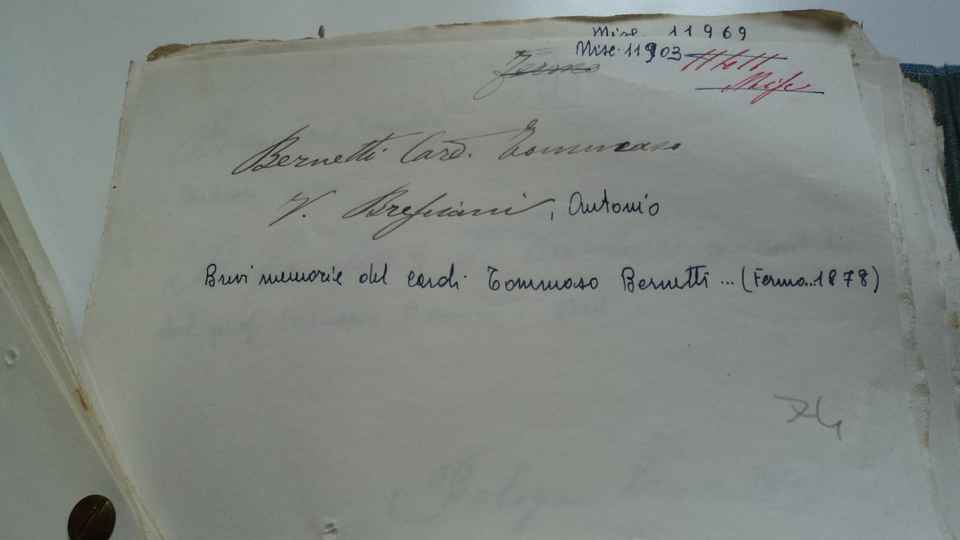 Misc. 11969
Misc. 11903
Fermo
Misc
Bernetti Card. Tommaso
V. Bresciani, Antonio
Brevi memorie del card. Tommaso Bernetti ... (Fermo...1878)